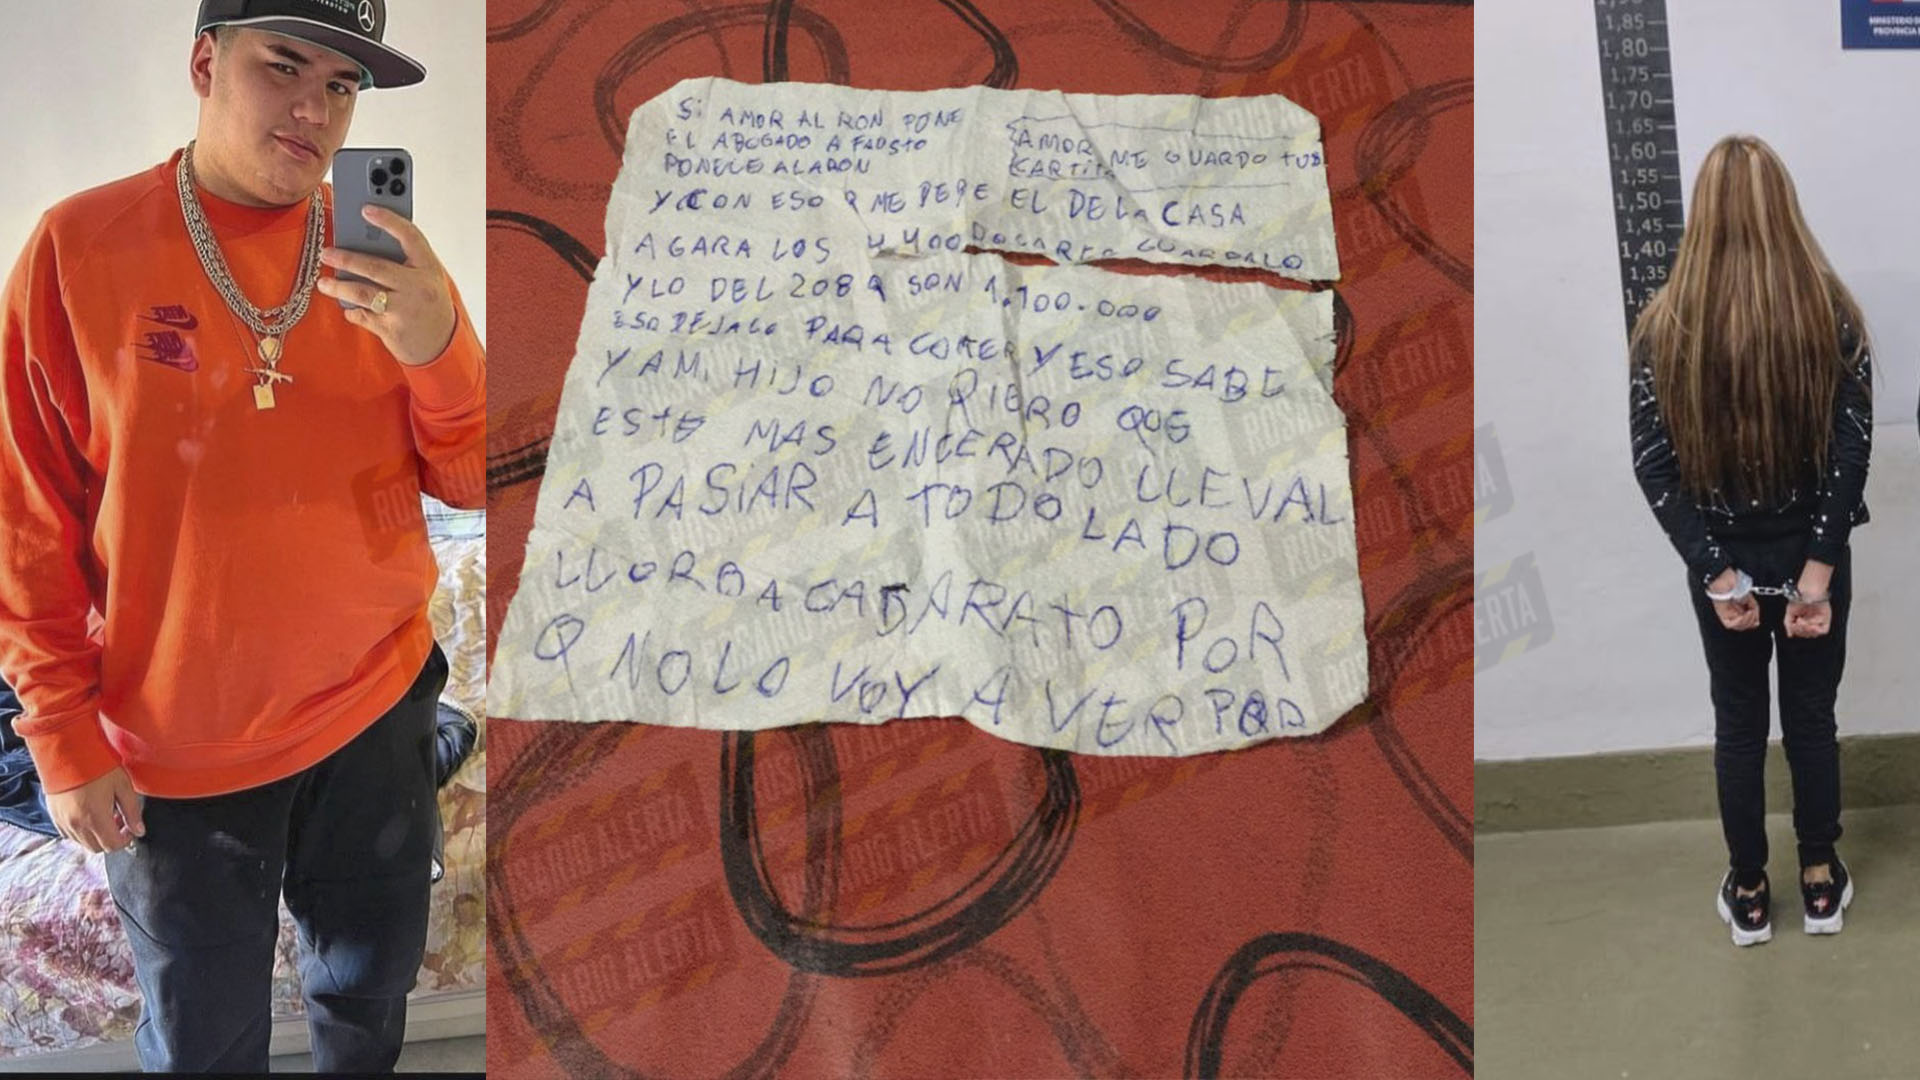 SI AMOR AL RON PONE
EL ABOGADO A FAUSTO
PONELE ALARON
AMOR
CARTITA ME GUARDO TUS
Y CON ESO Q ME DEPE EL DE LA CASA
AGARA LOS 4400 DOLARES GUARDALO
Y LO DEL 208 Q SON 1.100.000
ESO DEJALO PARA COMER Y ESO SABE
Y A MI HIJO NO QIERO QUE
ESTE MAS ENCERADO LLEVAL
A PASIAR A TODO LADO
LLORBA CADA RATO POR
Q NO LO VOY A VER POR
1,85
1,80
1,75
1,70
1,65
1,60
1,55
1,50
1,45
1,40
1,35
MINISTERIO D
PROVINCIA
ROSARIO ALERTA